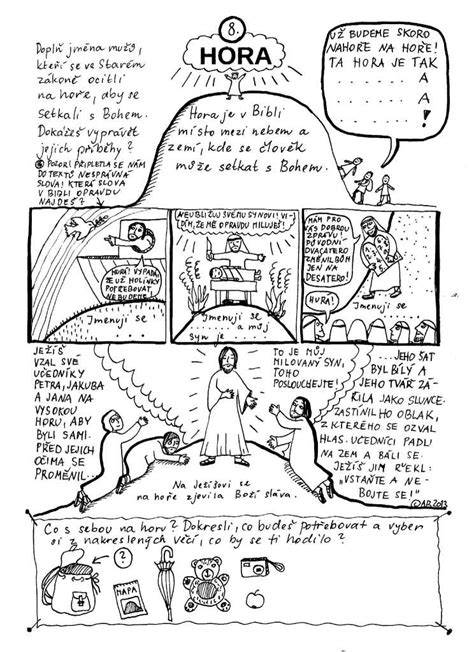 8.
HORA
Doplň jména mužů,
kteří se ve Starém
zákoně ocitli
na hoře, aby se
setkali s Bohem.
Dokážeš vyprávět
jejich příběhy?
POZOR! PŘIPLETLA SE NÁM
DO TEXTŮ NESPRÁVNÁ
SLOVA! KTERÁ SLOVA
V BIBLI OPRAVDU
NAJDEŠ?
Hora je v Bibli
místo mezi nebem a
zemí, kde se člověk
může setkat s Bohem.
UŽ BUDEME SKORO
NAHOŘE NA HOŘE!
TA HORA JE TAK
A
A
!
HURÁ! VYPADÁ,
ŽE UŽ HOLINKY
POTŘEBOVAT
NEBUDEME
Jmenuji se
NEUBLIŽUJ SVÉMU SYNOVI! VI-
DÍM, ŽE MĚ OPRAVDU MILUJEŠ!
Jmenuji se
a můj
syn je
MÁM PRO
VÁS DOBROU
ZPRÁVU!
PŮVODNÍ
DVACATERO
ZMĚNIL BŮH
JEN NA
DESATERO!
HURÁ!
Jmenuji se
JEŽÍŠ
VZAL SVÉ
UČEDNÍKY
PETRA, JAKUBA
A JANA NA
VYSOKOU
HORU, ABY
BYLI SAMI.
PŘED JEJICH
OČIMA SE
PROMĚNIL...
TO JE MŮJ
MILOVANÝ SYN,
TOHO
POSLOUCHEJTE!
...JEHO ŠAT
BYL BÍLÝ A
JEHO TVÁŘ ZÁ-
ŘILA JAKO SLUNCE.
ZASTÍNIL HO OBLAK,
Z KTERÉHO SE OZVAL
HLAS. UČEDNÍCI PADLI
NA ZEM A BÁLI SE.
JEŽÍŠ JIM ŘEKL:
„VSTAŇTE A NE-
BOJTE SE!"
Na Ježíšovi se
na hoře zjevila Boží sláva.
©AB2013
Co s sebou na horu? Dokresli, co budeš potřebovat a vyber
si z nakreslených věcí, co by se ti hodilo?
?
MAPA